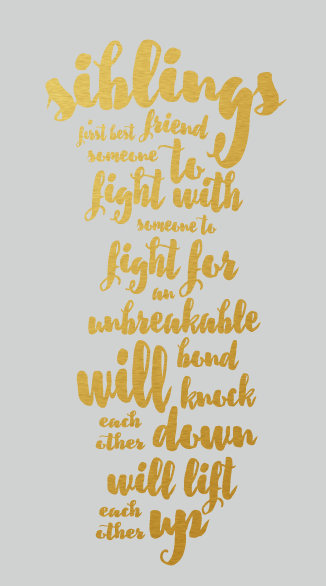 siblings
first best friend
someone to
fight with
someone to
fight for
an
unbreakable
bond
will knock
each other down
will lift
each other up